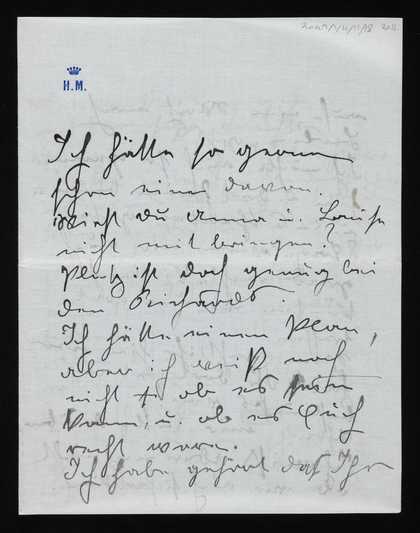 H.M.
Ich hätte so gerne
schon eines davon.
Willst du Anna u. Louise
nicht mit bringen?
Platz ist doch genug bei
den Reichards.
Ich hätte einen Plan,
aber ich weiß noch
nicht ob es sein
kann, u. ob es Euch
recht wäre.
Ich habe gehört daß Ihr